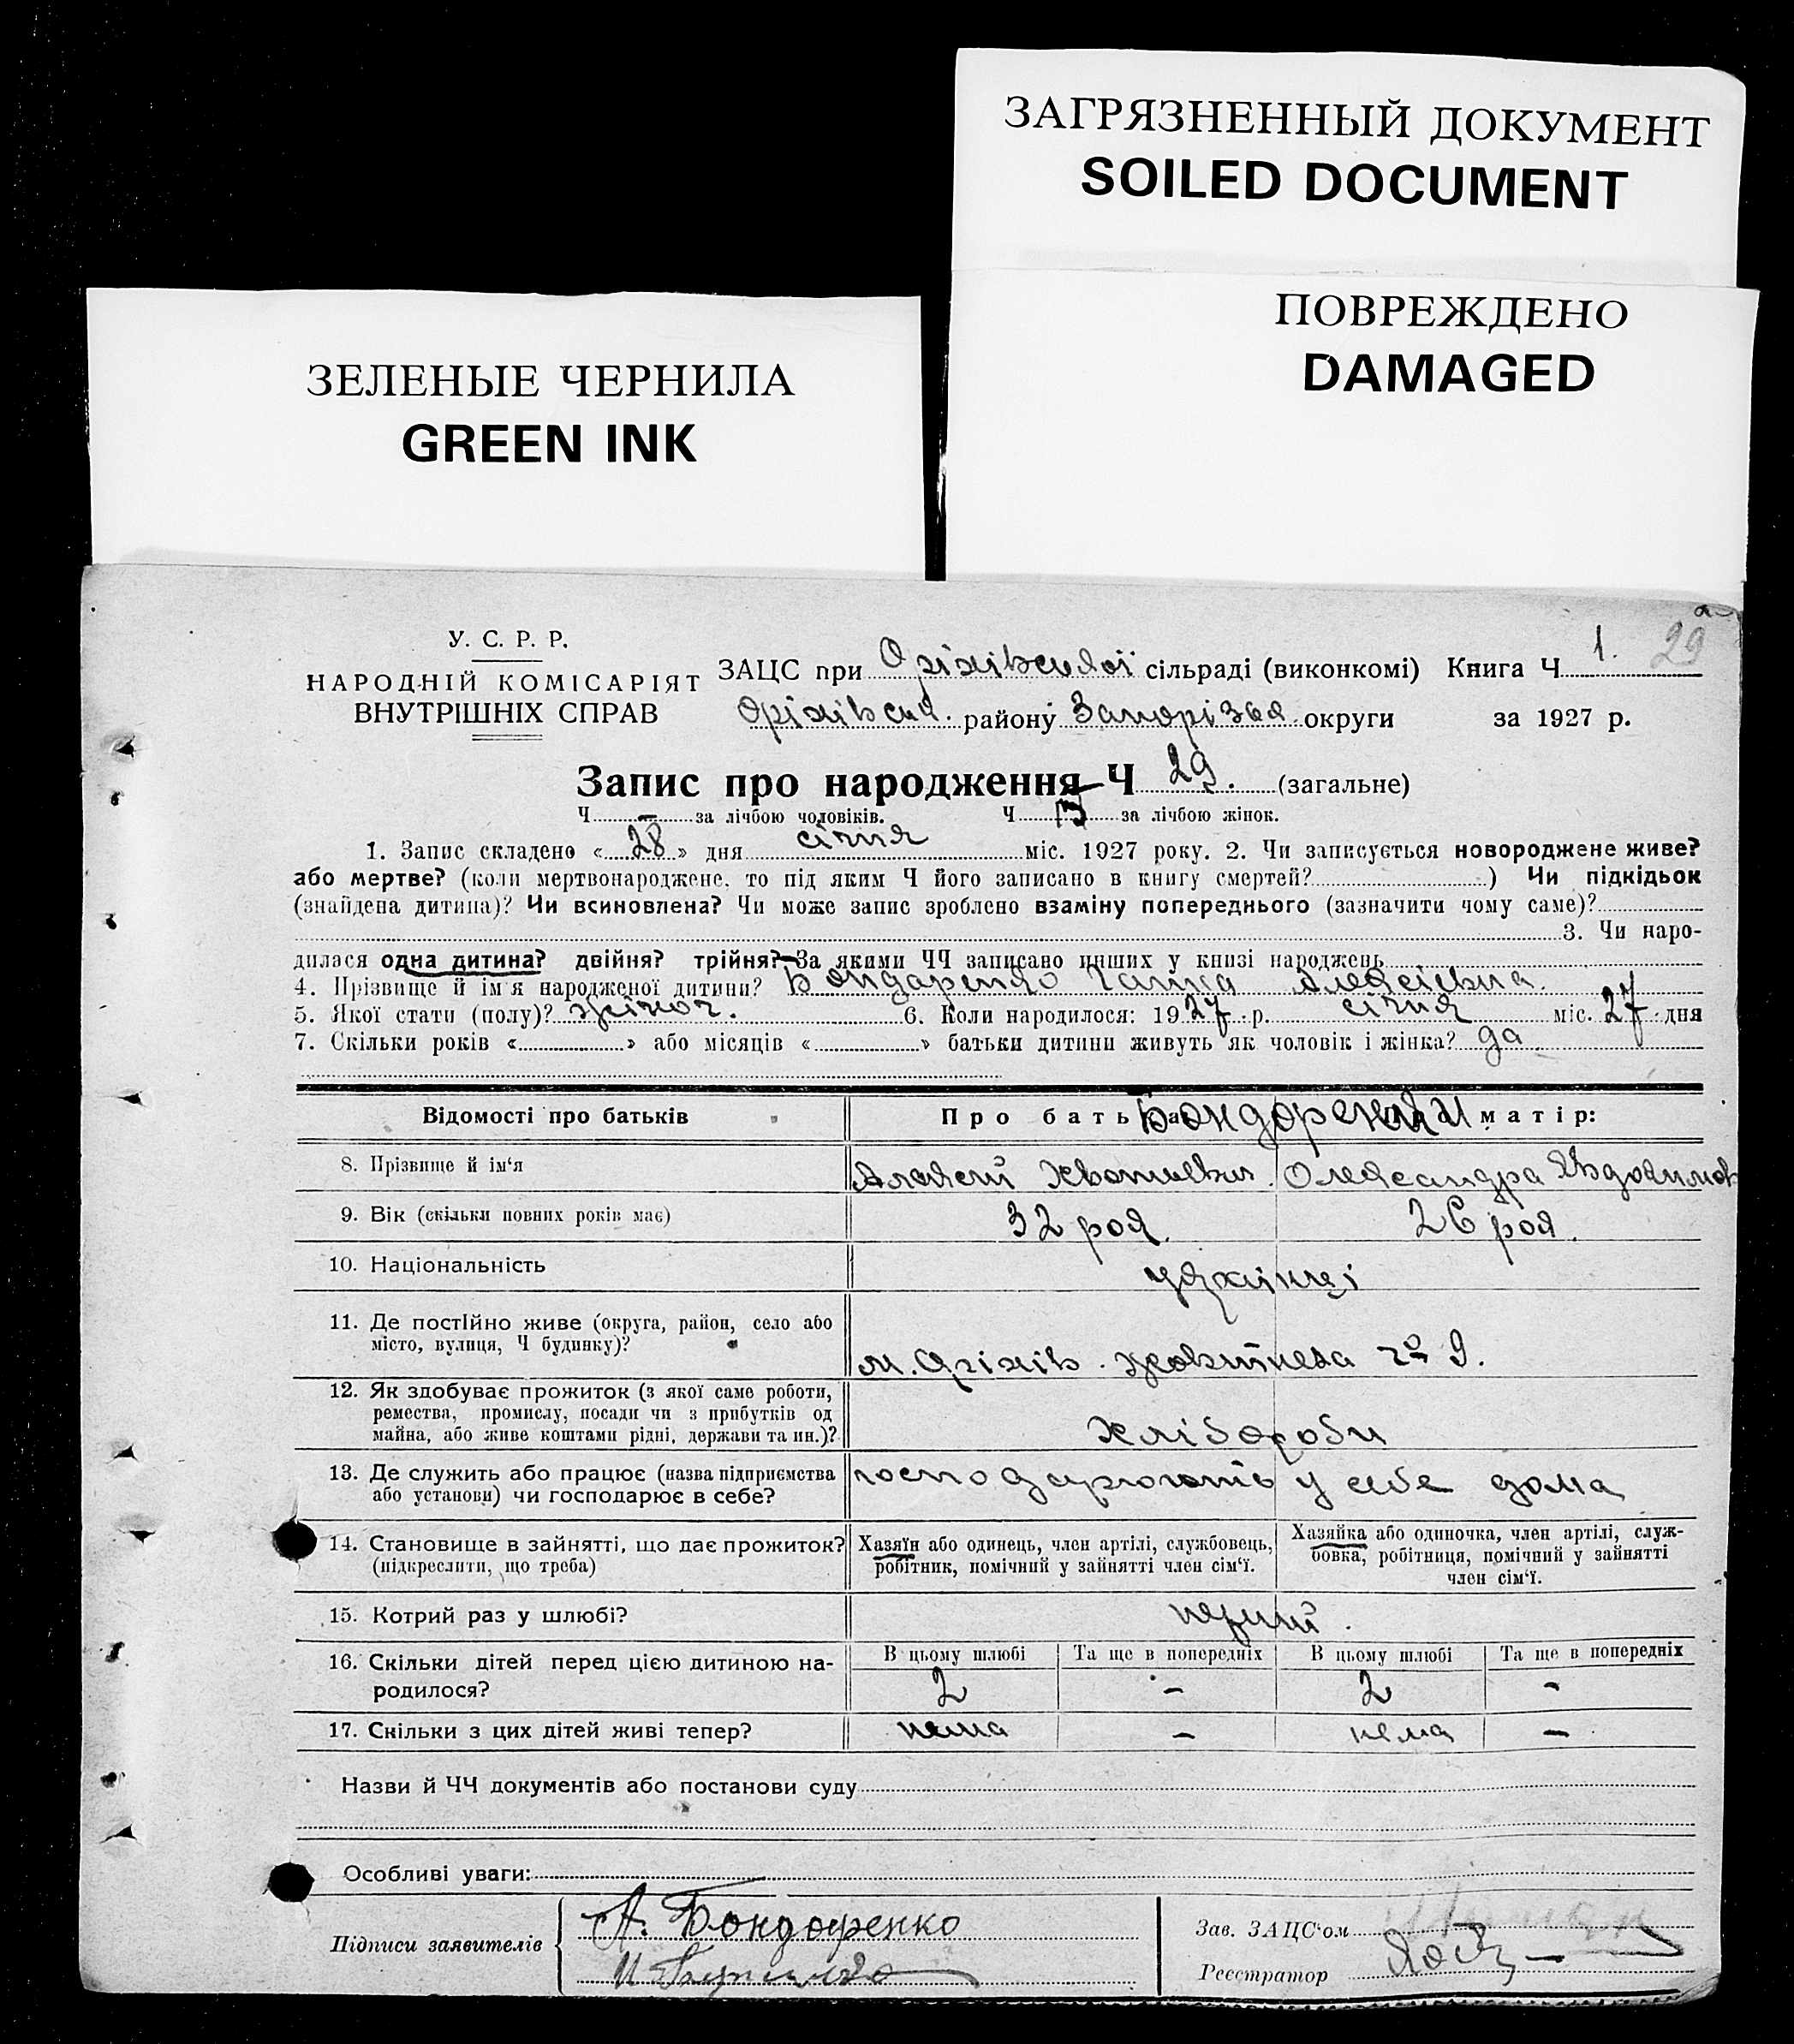 ЗАГРЯЗНЕННЫЙ ДОКУМЕНТ
SOILED DOCUMENT
ПОВРЕЖДЕНО
DAMAGED
ЗЕЛЕНЫЕ ЧЕРНИЛА
GREEN INK
У. С. Р. Р.
НАРОДНІЙ КОМІСАРІЯТ
ВНУТРІШНІХ СПРАВ
ЗАЦС при Оріхівської сільраді (виконкомі) Книга Ч 1. 29
Оріхівськ. району Запорізьк. округи за 1927 р.
Запис про народження Ч 29. (загальне)
Ч — за лічбою чоловіків. Ч за лічбою жінок.
1. Запис складено « 28 » дня січня міс. 1927 року. 2. Чи записується новороджене живе?
або мертве? (коли мертвонароджене, то під яким Ч його записано в книгу смертей? ) Чи підкідьок
(знайдена дитина)? Чи всиновлена? Чи може запис зроблено взаміну попереднього (зазначити чому саме)?
3. Чи наро-
дилася одна дитина? двійня? трійня? За якими ЧЧ записано инших у книзі народжень
4. Прізвище й ім'я народженої дитини? Бондаренко Ганна Алексієвна.
5. Якої стати (полу)? жіноч. 6. Коли народилося: 1927 р. січня міс. 27 дня
7. Скільки років « » або місяців « » батьки дитини живуть як чоловік і жінка? да
Відомості про батьків Про батька Бондаренки матір:
8. Прізвище й ім'я Олександра
9. Вік (скільки повних років має) 32 рок. 26 рок.
10. Національність українці
11. Де постійно живе (округа, район, село або
місто, вулиця, Ч будинку)?
м. Оріхів. Жовтнева 9.
12. Як здобуває прожиток (з якої саме роботи,
ремества, промислу, посади чи з прибутків од
майна, або живе коштами рідні, держави та ин.)?
Хлібороби
13. Де служить або працює (назва підприємства
або установи) чи господарює в себе?
господарюють у себе дома
14. Становище в зайнятті, що дає прожиток?
(підкреслити, що треба)
Хазяїн або одинець, член артілі, службовець,
робітник, помічний у зайнятті член сім'ї.
Хазяйка або одиночка, член артілі, служ-
бовка, робітниця, помічний у зайнятті
член сім'ї.
15. Котрий раз у шлюбі? перший.
16. Скільки дітей перед цією дитиною на-
родилося?
В цьому шлюбі Та ще в попередніх В цьому шлюбі Та ще в попередніх
2 — 2 —
17. Скільки з цих дітей живі тепер? нема — нема —
Назви й ЧЧ документів або постанови суду
Особливі уваги:
Підписи заявителів
А. Бондаренко
Зав. ЗАЦС'ом
Реєстратор